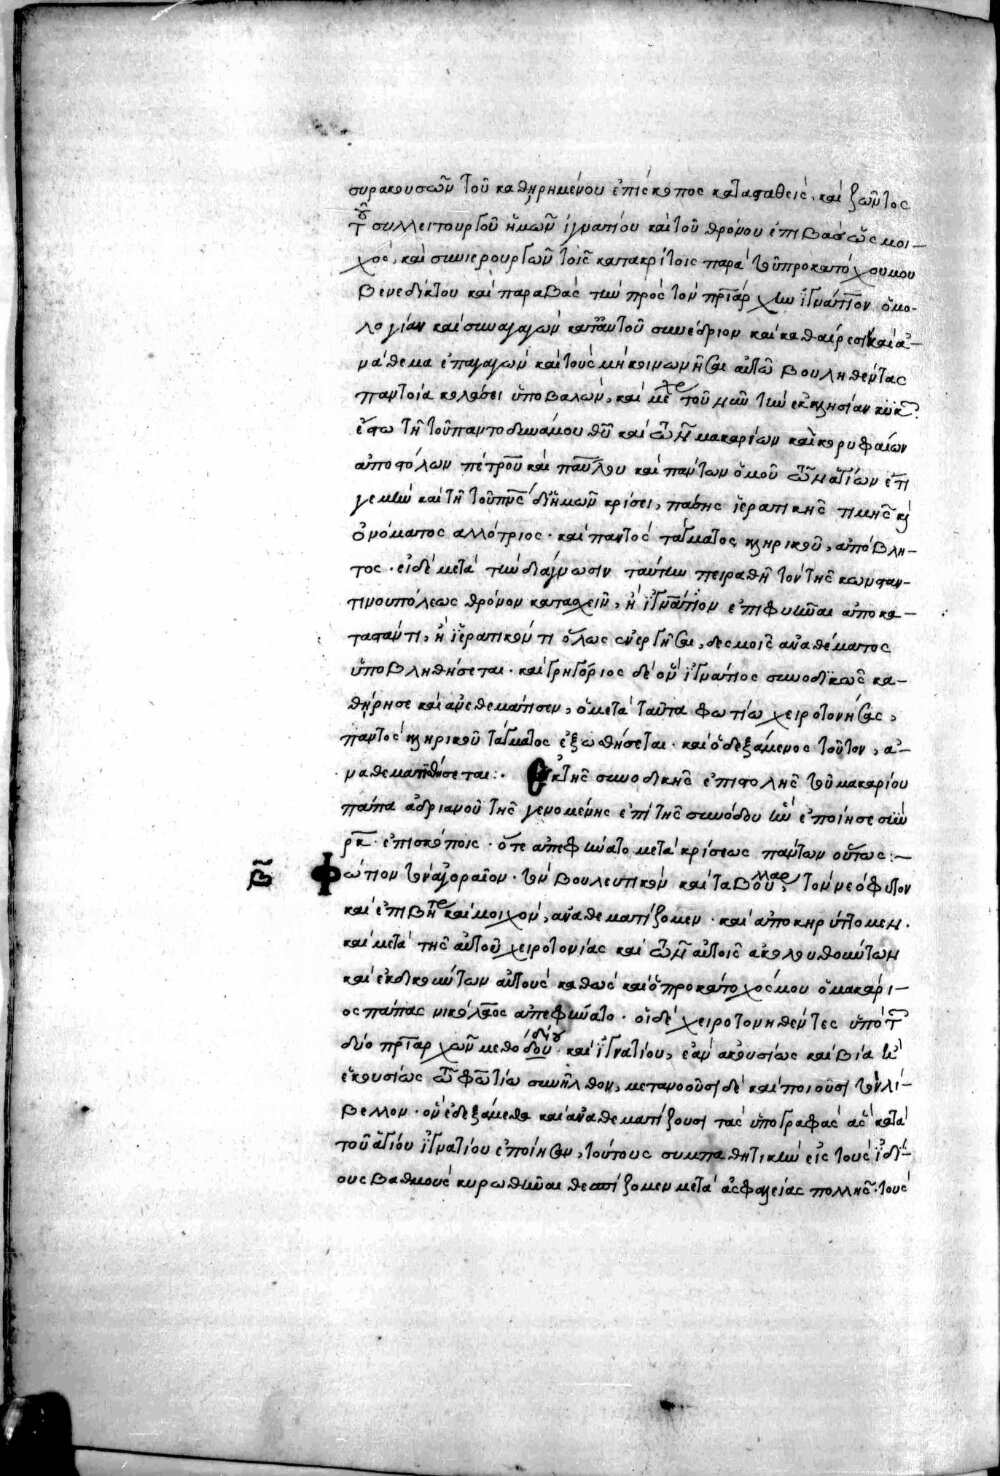 συρακουσῶν τοῦ καθηρημένου ἐπισκόπος κατασταθεὶς, καὶ ζῶντος
τοῦ συλλειτουργοῦ ἡμῶν ἰγνατίου καὶ τοῦ θρόνου ἐπιβὰς ὡς μοι-
χὸς, καὶ συνιερουργῶν τοῖς κατακρίτοις παρὰ τοῦ προκατόχου μου
βενεδίκτου καὶ παραβὰς τὴν πρὸς τὸν πριάρχην ἰγνάτιον ὁμο-
λογίαν καὶ συναγαγὼν κατ' αὐτοῦ συνέδριον καὶ καθαίρεσιν καὶ ἀ-
νάθεμα ἐπαγαγὼν καὶ τοὺς μὴ κοινωνῆσαι αὐτῷ βουληθέντας
παντοία κολάσει ὑποβαλὼν, καὶ μέχρι τοῦ νῦν τὴν ἐκκλησίαν
ἔστω τῇ τοῦ παντοδυνάμου θυ καὶ τῶν μακαρίων καὶ κορυφαίων
ἀποστόλων πέτρου καὶ παύλου καὶ πάντων ὁμοῦ τῶν ἁγίων ἔτι
γε μὴν καὶ τῇ τοῦ πνς δι' ἡμῶν κρίσει, πάσης ἱερατικῆς τιμῆς καὶ
ὀνόματος ἀλλότριος· καὶ παντὸς τάγματος κληρικοῦ, ἀπόβλη-
τος· εἰ δὲ μετὰ τὴν διάγνωσιν ταύτην πειραθῇ τὸν τῆς κωνσταν-
τινουπόλεως θρόνον κατασχεῖν, ἢ ἰγνάτιον ἐπιφυῆναι ἀποκα-
ταστάντι, ἢ ἱερατικόν τι ὅλως ἐνεργῆσαι, δεσμοῖς ἀναθέματος
ὑποβληθήσεται· καὶ γρηγόριος δὲ ὃν ἰγνάτιος συνοδικῶς κα-
θήρησε καὶ ἀνεθεμάτισεν, ὁ μετὰ ταῦτα φωτίω χειροτονήσας,
παντὸς κληρικοῦ τάγματος ἐξωθήσεται· καὶ ὁ δεξάμενος τοῦτον, ἀ-
ναθεματισθήσεται:· Ἐκ τῆς συνοδικῆς ἐπιστολῆς τοῦ μακαρίου
πάπα ἀδριανοῦ τῆς γενομένης ἐπὶ τῆς συνόδου ἣν ἐποίησε σὺν
ρκ· ἐπισκόποις· ὅτε ἀπεφήνατο μετὰ κρίσεως πάντων οὕτως:-
β Φώτιον τὸν ἀγοραῖον· τὸν βουλευτικὸν καὶ ταβουλάριον τὸν νεόφυτον
καὶ ἐπιβήτορα καὶ μοιχὸν, ἀναθεματίζομεν· καὶ ἀποκηρύττομεν·
καὶ μετὰ τῆς αὐτοῦ χειροτονίας καὶ τῶν αὐτοῖς ἀκολουθούντων
καὶ ἐκδικούντων αὐτοὺς καθὼς καὶ ὁ προκάτοχός μου ὁ μακάρι-
ος πάπας νικόλαος ἀπεφήνατο· οἱ δὲ χειροτονηθέντες ὑπὸ τῶν
δύο πριαρχῶν μεθοδίου· καὶ ἰγνατίου, ἐὰν ἀκουσίως καὶ βία ἢ
ἑκουσίως τῷ φωτίω συνῆλθον, μετανοοῦσι δὲ καὶ ποιοῦσι τὸν λί-
βελλον· ὃν ἐδεξάμεθα καὶ ἀναθεματίζουσι τὰς ὑπογραφὰς ἃς κατὰ
τοῦ ἁγίου ἰγνατίου ἐποίησαν, τούτους συμπαθητικὴν εἰς τοὺς ἰδί-
ους βαθμοὺς κυρωθῆναι θεσπίζομεν μετὰ ἀσφαλείας πολλῆς· τοὺς